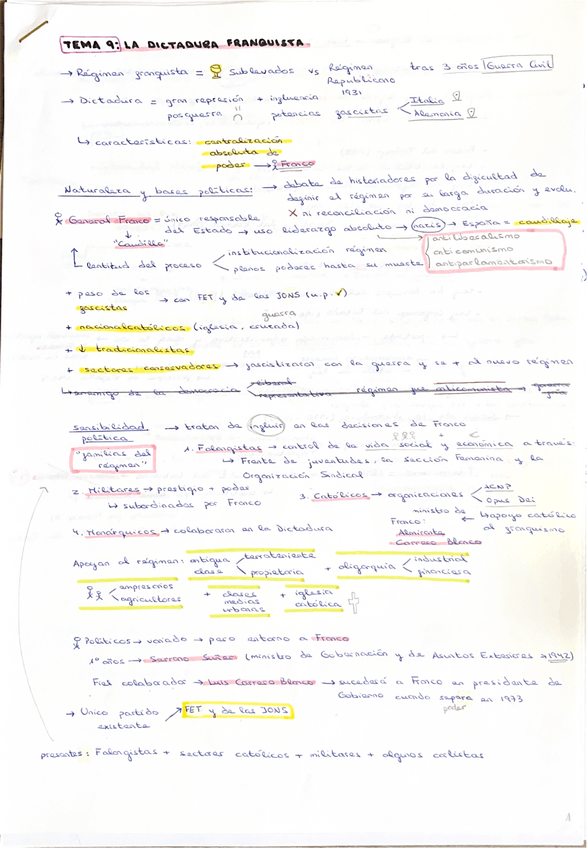 TEMA 9: LA DICTADURA FRANQUISTA
→ Régimen franquista = Sublevados vs Régimen Republicano 1931 tras 3 años Guerra Civil
→ Dictadura = gran represión + influencia
posguerra potencias fascistas < Italia
Alemania
↳ características: centralización
absoluta de
poder → Franco
Naturaleza y bases políticas: → debate de historiadores por la dificultad de
definir el régimen por su larga duración y evolu.
X ni reconciliación ni democracia
General Franco = único responsable
del Estado → uso liderazgo absoluto → nazis → España = caudillaje
"Caudillo"
antiliberalismo
anticomunismo
antiparlamentarismo
lentitud del proceso < institucionalización régimen
plenos poderes hasta su muerte
+ peso de los
fascistas → con FET y de las JONS (u.p. ✓)
+ nacionalcatólicos (iglesia, cruzada)
guerra
+ ↓ tradicionalistas
+ sectores conservadores → fascistizaron con la guerra y se + al nuevo régimen
enemigo de la democracia < liberal
representativa régimen fue anticomunista →
sensibilidad
política → tratan de influir en las decisiones de Franco
"familias del
régimen"
1. Falangistas → control de la vida social y económica a través:
↳ Frente de juventudes, la sección Femenina y la
Organización Sindical
2. Militares → prestigio + poder
↳ subordinados por Franco
3. Católicos → organizaciones < ACNP
Opus Dei
↳ apoyo católico
al franquismo
ministro de
Franco:
Almirante
Carrero Blanco
4. Monárquicos → colaboraron en la Dictadura
Apoyan al régimen: antigua
clase < terrateniente
propietaria + oligarquía < industrial
financiera
< empresarios
agricultores + clases
medias
urbanas + iglesia
católica
Políticos → variado → pero entorno a Franco
1º años → Serrano Suñer (ministro de Gobernación y de Asuntos Exteriores → 1942)
Fiel colaborador → Luis Carrero Blanco → sucederá a Franco en presidente de
Gobierno cuando separe en 1973
poder
→ Único partido
existente → FET y de las JONS
presentes: Falangistas + sectores católicos + militares + algunos carlistas
1